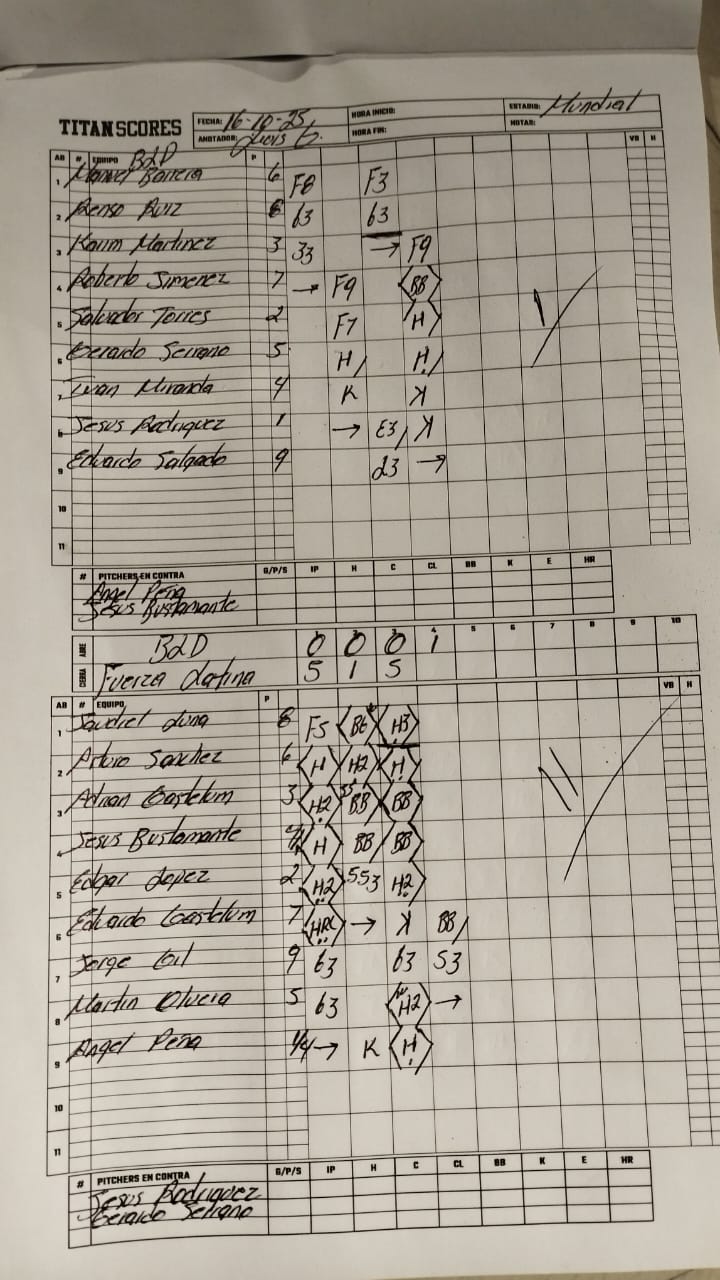 TITAN SCORES FECHA: 16-10-25 HORA INICIO: ESTADIO: Mundial
ANOTADOR: Luis G. HORA FIN: NOTAS:
AB # EQUIPO BLD P VB H
1 Manuel Barrera 6 F8 F3
2 Renso Ruiz 63 63
3 Karim Martinez 3 33 → F9
4 Roberto Jimenez 7 → F9 BB
5 Salvador Torres 2 F7 H
6 Gerardo Serrano 5 H/ H/
7 Ivan Miranda 4 K K
8 Jesus Rodriguez 1 → E3/ K
9 Eduardo Salgado 9 23 →
10
11
# PITCHERS EN CONTRA G/P/S IP H C CL BB K E HR
Angel Peña
Jesus Bustamante
ABRE BLD 0 0 0 1 5 6 7 8 9 10
CIERRA Fuerza Latina 5 1 5
AB # EQUIPO P VB H
1 Saudiel Luna 8 F5 BB H3
2 Arturo Sanchez 6 H H2 H
3 Adrian Gastelum 3 H2 BB BB
4 Jesus Bustamante H BB/ BB
5 Edgar Lopez 2 H2 553 H2
6 Eduardo Gastelum 7 HR → K BB/
7 Jorge Gil 9 63 63 53
8 Martin Olvera 5 63 H2 →
9 Angel Peña 1/4 → K H
10
11
# PITCHERS EN CONTRA G/P/S IP H C CL BB K E HR
Jesus Rodriguez
Gerardo Serrano